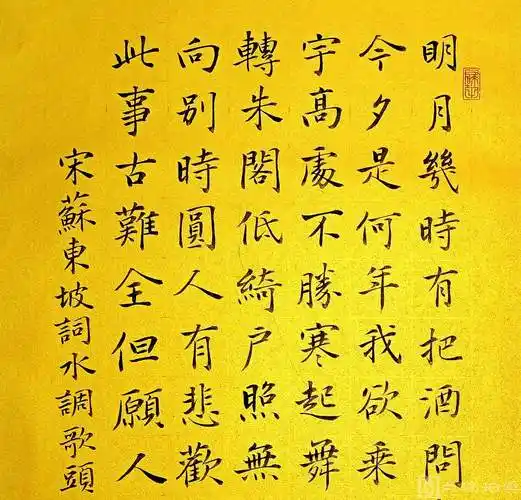 明月幾時有把酒問
今夕是何年我欲乘
宇髙處不勝寒起舞
轉朱閣低綺户照無
向别時圓人有悲歡
此事古難全但願人
宋蘇東坡詞水調歌頭